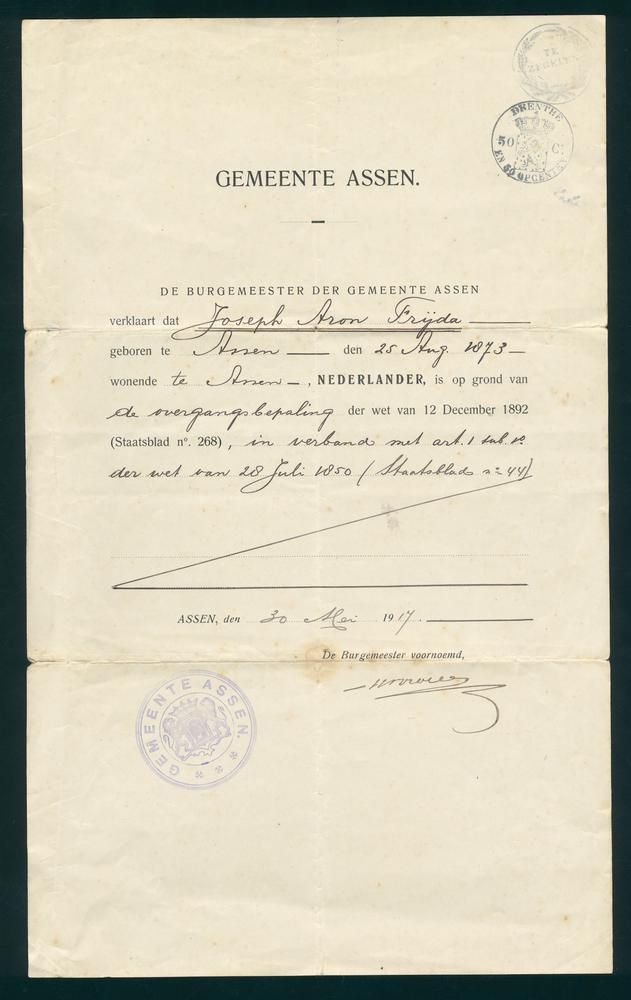 TE
ZEGELEN
DRENTHE
50 C.
EN 50 OPCENTEN
GEMEENTE ASSEN.
DE BURGEMEESTER DER GEMEENTE ASSEN
verklaart dat Joseph Aron Frijda
geboren te Assen den 25 Aug. 1873
wonende te Assen, NEDERLANDER, is op grond van
de overgangsbepaling der wet van 12 December 1892
(Staatsblad nº. 268), in verband met art. 1 sub. 1º
der wet van 28 Juli 1850 (Staatsblad nº 44)
ASSEN, den 30 Mei 1917.
De Burgemeester voornoemd,
GEMEENTE ASSEN.